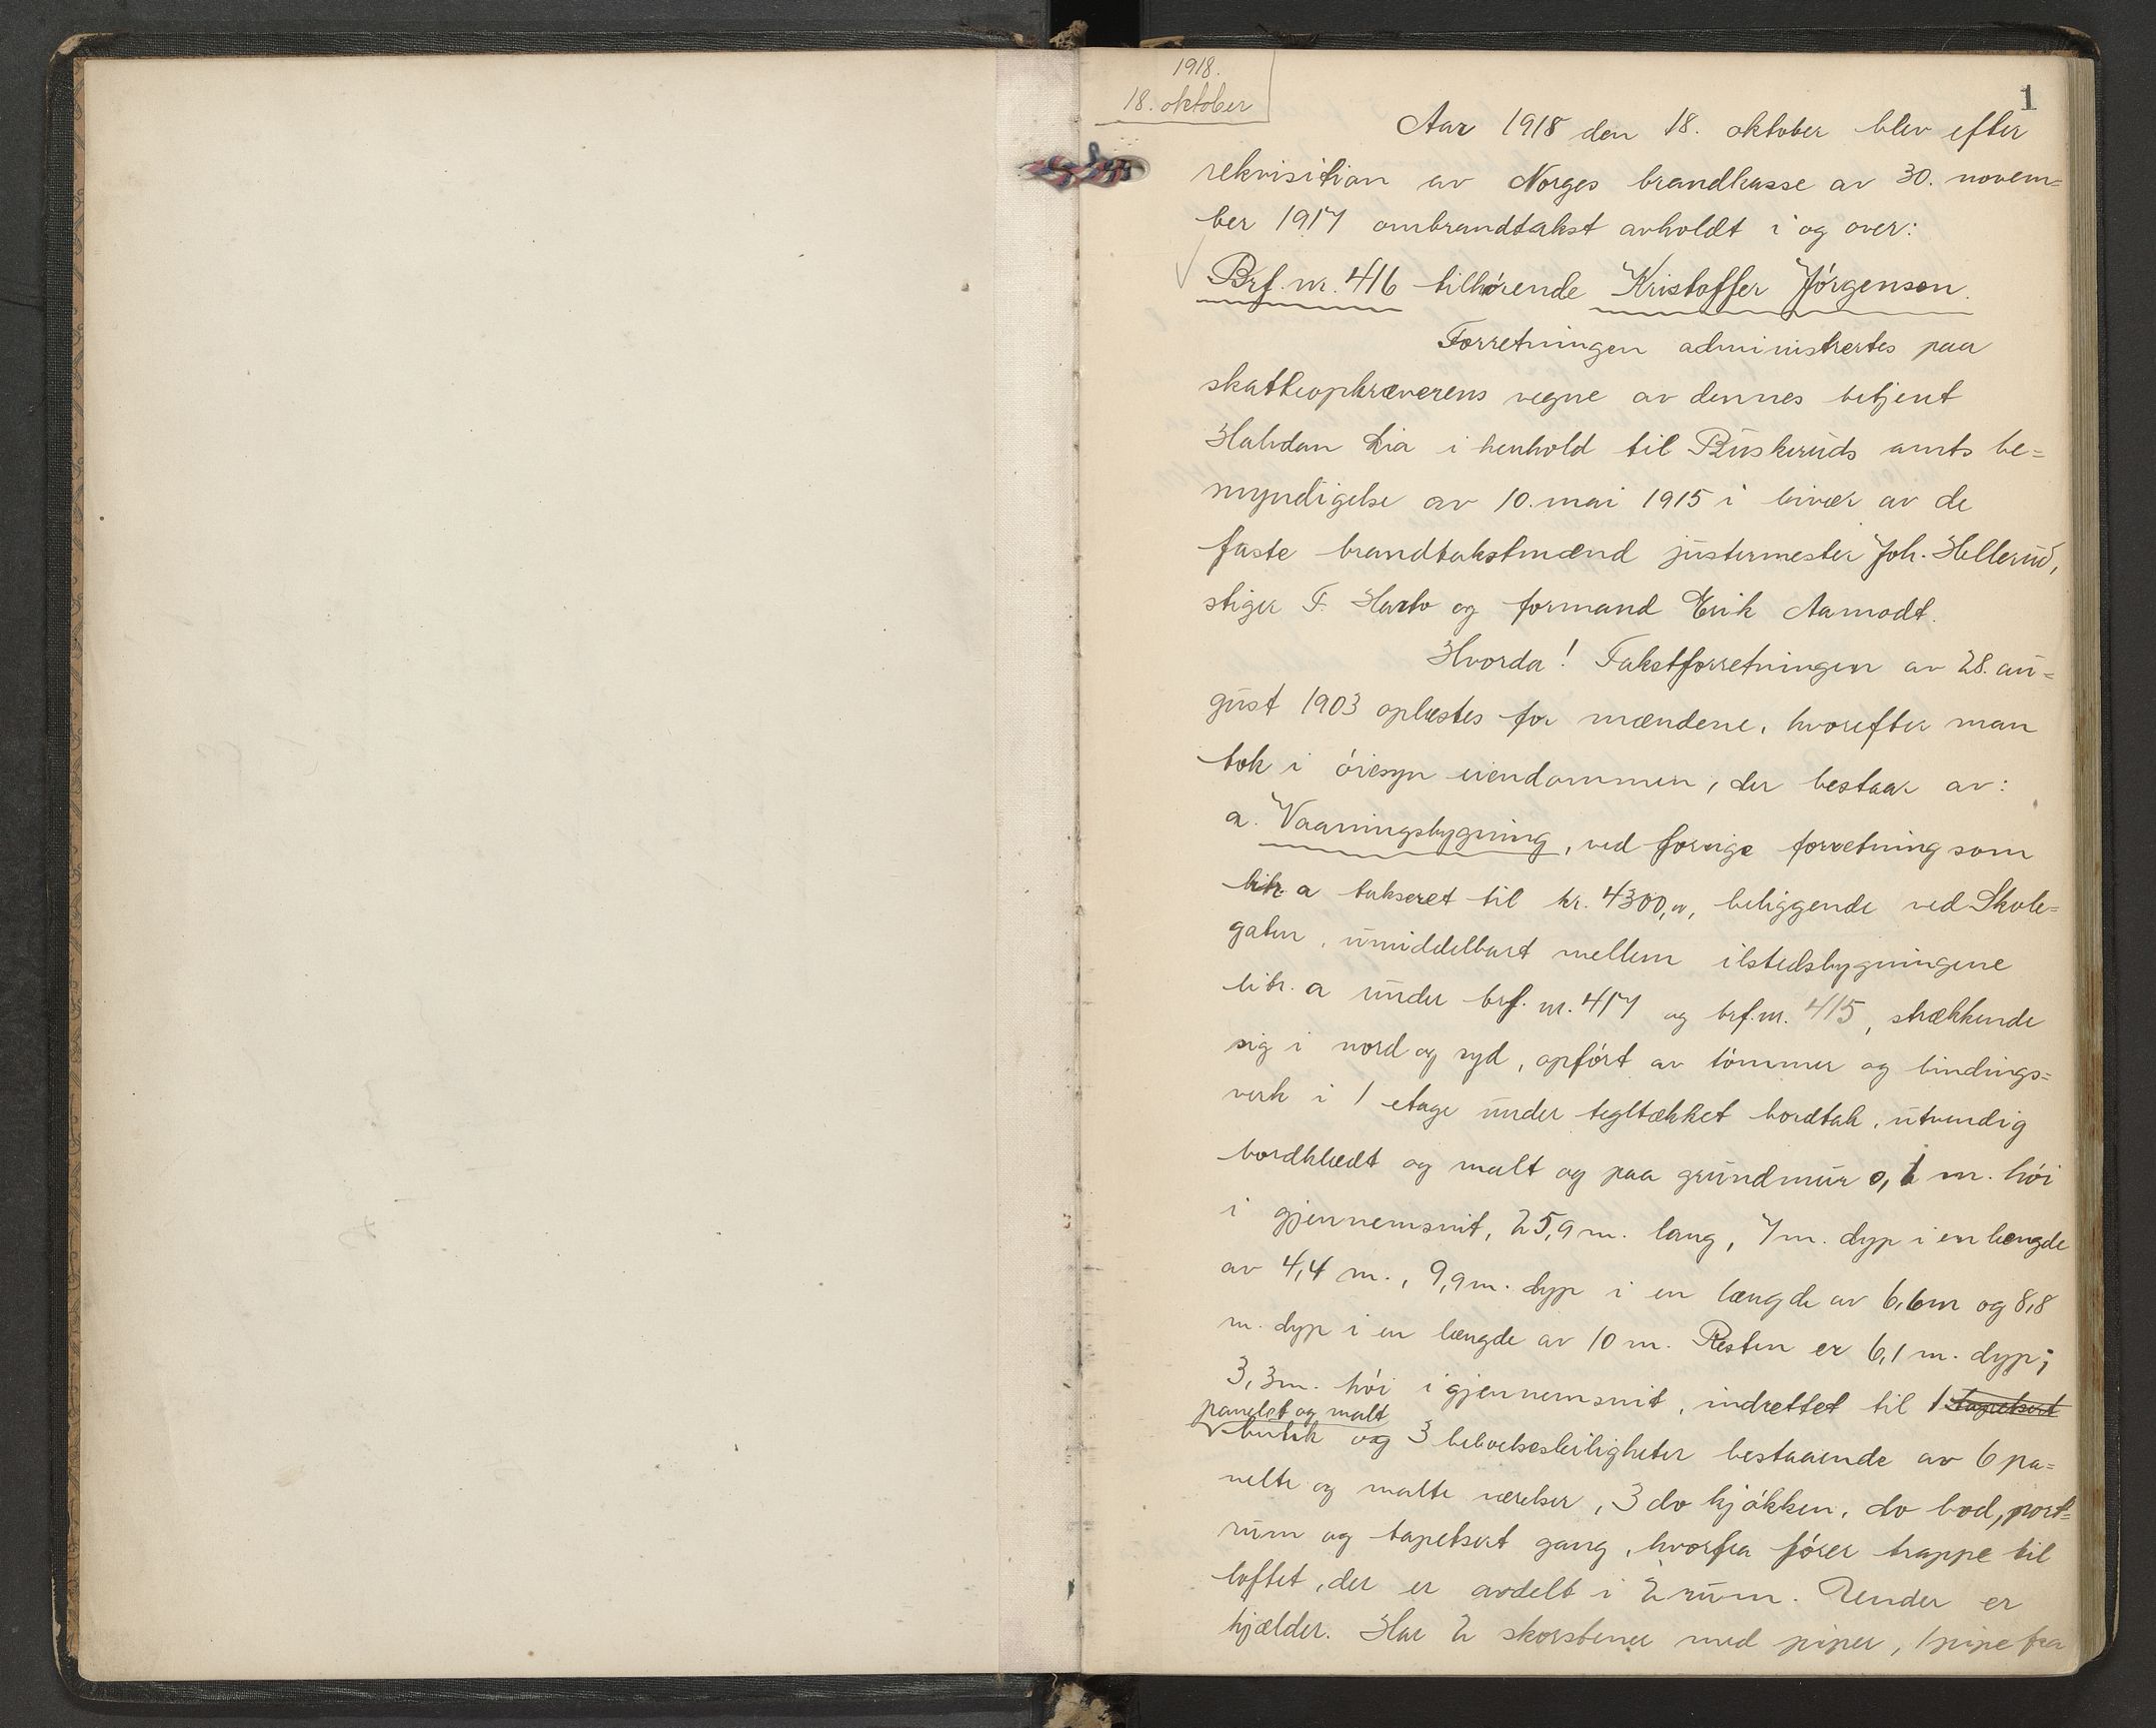 1918.
18. oktober
1
Aar 1918 den 18. oktober blev efter
rekvisition av Norges brandkasse av 30. novem=
ber 1917 ombrandtakst avholdt i og over:
Brf. nr. 416 tilhørende Kristoffer Jörgensen.
Forretningen administrertes paa
skatteopkræverens vegne av dennes betjent
Halvdan Lia i henhold til Buskeruds amts be=
myndigelse av 10. mai 1915 i bivær av de
faste brandtakstmænd justermester Joh. Hellerud,
stiger F. og formand Erik Aamodt.
Hvorda! Takstforretningen av 28. au=
gust 1903 oplæstes for mændene, hvorefter man
tok i öiesyn eiendommen, der bestaar av:
a. Vaaningsbygning, ved forrige forretning som
litr. a takseret til kr. 4300,", beliggende ved Skole=
gaten, umiddelbart mellem ilstedsbygningene
litr. a under brf. nr. 417 og brf. nr. 415, strækkende
sig i nord og syd, opfört av tömmer og bindings=
verk i 1 etage under tegltækket bordtak, utvendig
bordklædt og malt og paa grundmur 0, m. höi
i gjennemsnit, 25,9 m. lang, 7 m. dyp i en længde
av 4,4 m., 9,9 m. dyp i en længde av 6,6 m og 8,8
m. dyp i en længde av 10 m. Resten er 6,1 m. dyp;
3,3 m. höi i gjennemsnit, indrettet til 1 tapetsert
panelet og malt
butik og 3 beboelsesleiligheter bestaaende av 6 pa=
nelte og malte værelser, 3 do kjökken, do bod, port=
rum og tapetsert gang, hvorfra förer trappe til
loftet, der er avdelt i 2 rum. Under er
kjælder. Har 2 skorstener med piper, 1 pipe fra